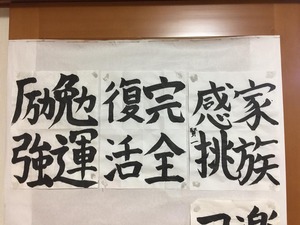 家族
感挑
完全
復活
勉運
励強
楽